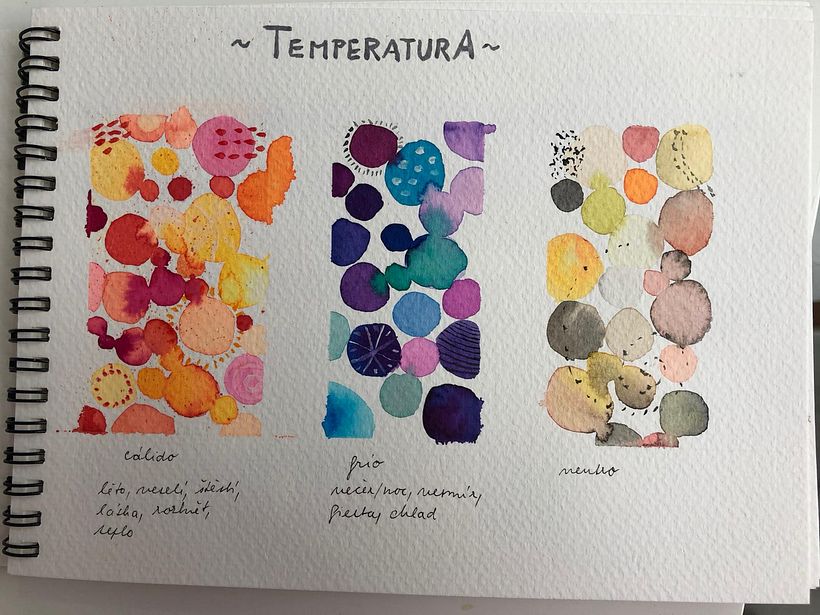 ~ TEMPERATURA ~
cálido
léto, veselí, štěstí,
láska, rozkvět,
teplo
frío
večer/noc, vesmír,
chlad
neutro